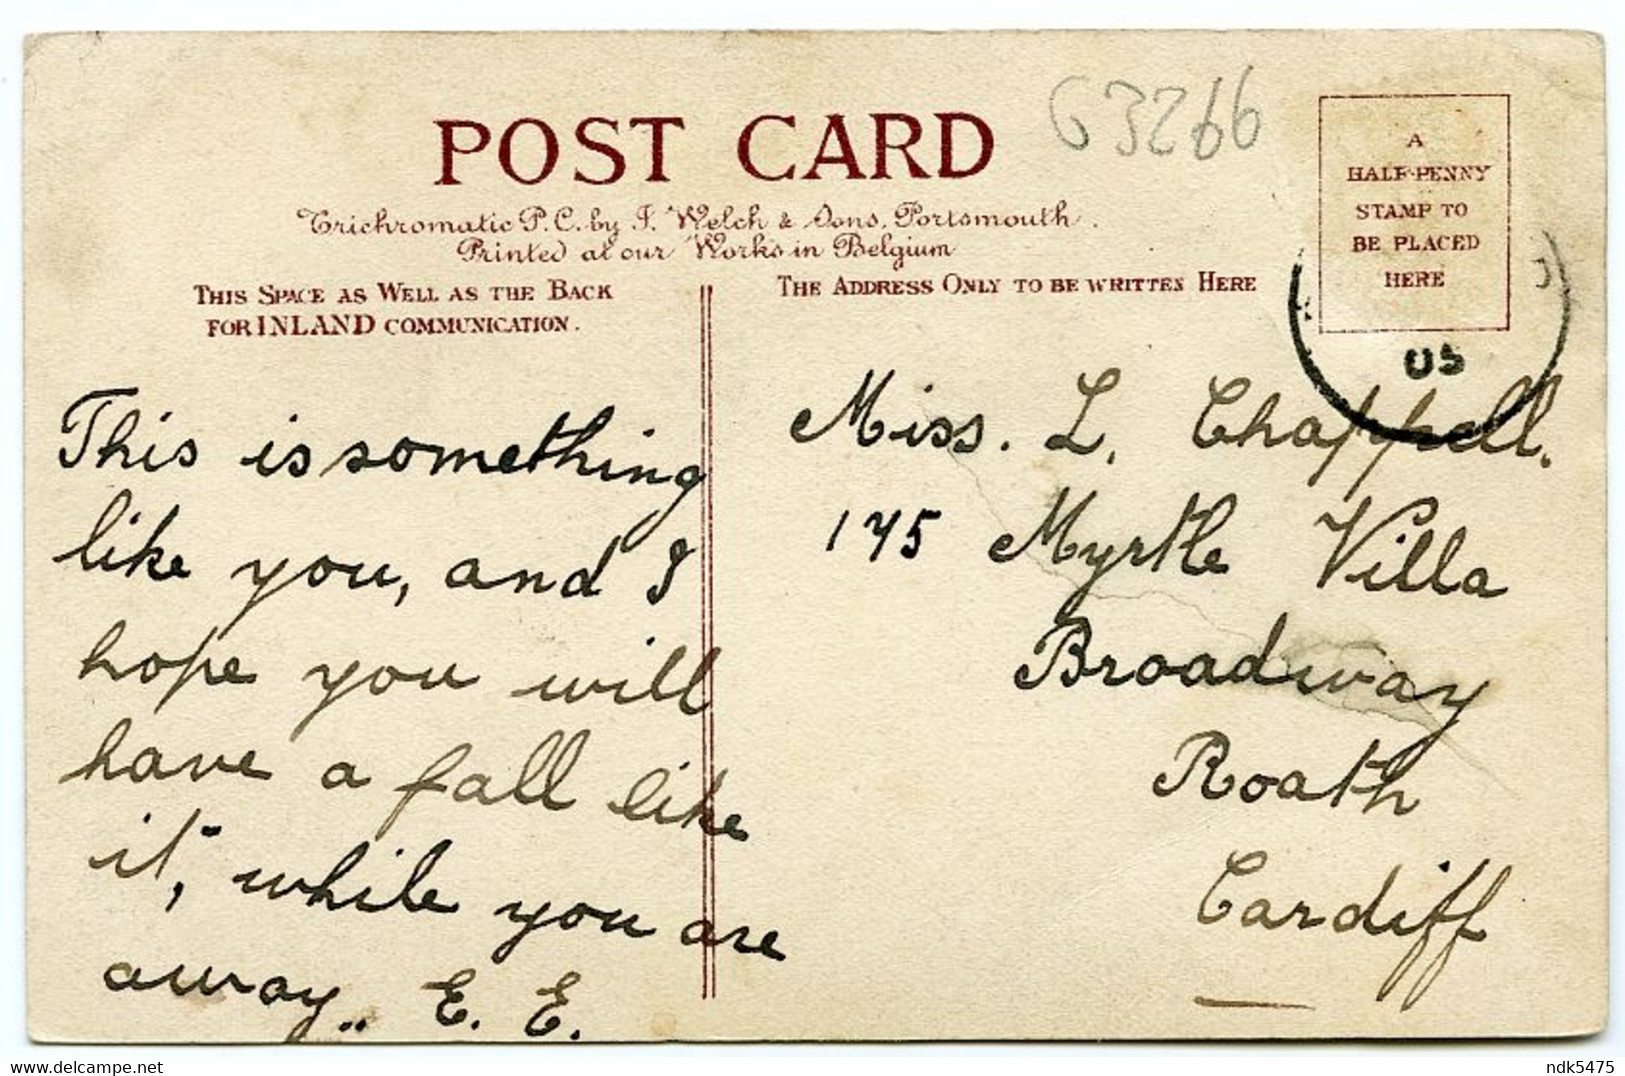 POST CARD
63266
A
HALF-PENNY
STAMP TO
BE PLACED
HERE
Trichromatic P.C. by J. Welch & Sons, Portsmouth.
Printed at our Works in Belgium
THIS SPACE AS WELL AS THE BACK
FOR INLAND COMMUNICATION.
THE ADDRESS ONLY TO BE WRITTEN HERE
05
This is something
like you, and I
hope you will
have a fall like
it, while you are
away.. E. E.
Miss. L. Chappell.
175 Myrtle Villa
Broadway
Roath
Cardiff
hippostcard.com
ndk5475